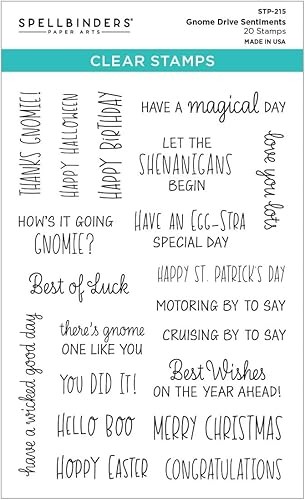 SPELLBINDERS®
PAPER ARTS
STP-215
Gnome Drive Sentiments
20 Stamps
MADE IN USA
CLEAR STAMPS
THANKS GNOMIE!
HAPPY HALLOWEEN
HAPPY BIRTHDAY
HAVE A magical DAY
LET THE
SHENANIGANS
BEGIN
love you lots
HOW'S IT GOING
GNOMIE?
HAVE AN EGG-STRA
SPECIAL DAY
Best of Luck
HAPPY ST. PATRICK'S DAY
MOTORING BY TO SAY
there's gnome
ONE LIKE YOU
CRUISING BY TO SAY
have a wicked good day
YOU DID IT!
Best Wishes
ON THE YEAR AHEAD!
HELLO BOO
MERRY CHRISTMAS
HOPPY EASTER
CONGRATULATIONS